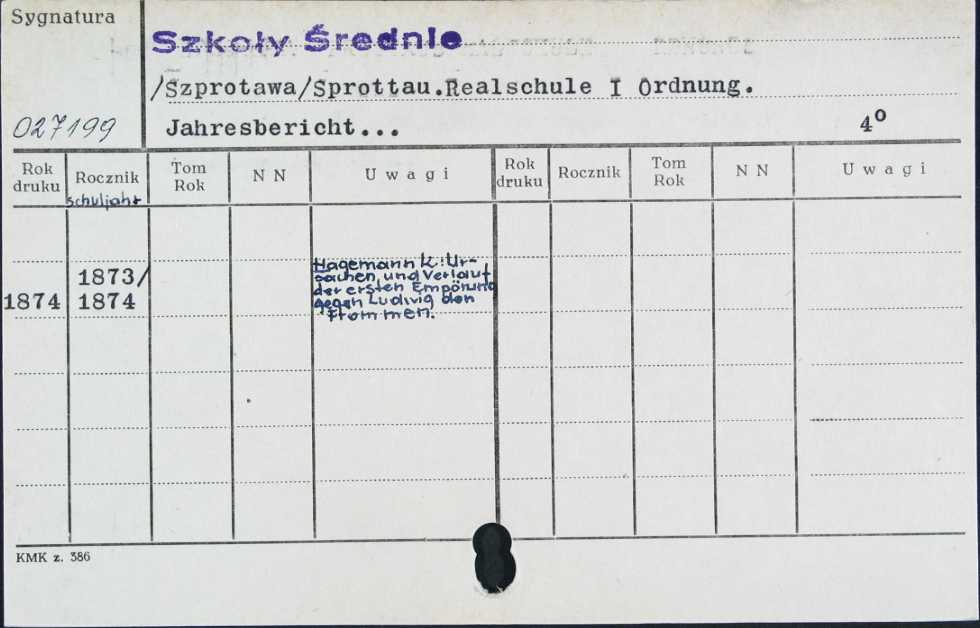 Sygnatura
Szkoły Średnie
/Szprotawa/Sprottau.Realschule I Ordnung.
027199
Jahresbericht...
4º
Rok druku
Rocznik
Schuljahr
Tom Rok
N N
U w a g i
Rok druku
Rocznik
Tom Rok
N N
U w a g i
1874
1873/
1874
Hagemann K: Ur-
sachen und Verlauf
der ersten Empörung
gegen Ludwig den
Frommen.
KMK z. 386